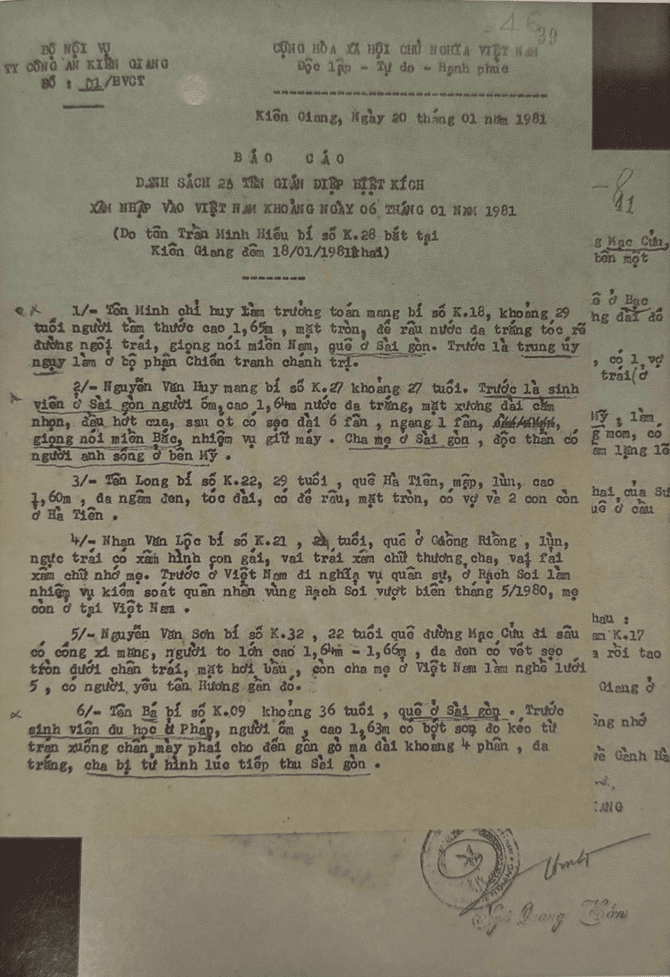 46
39
BỘ NỘI VỤ
TY CÔNG AN KIÊN GIANG
SỐ : 01/BVCT
CỘNG HÒA XÃ HỘI CHỦ NGHĨA VIỆT NAM
Độc lập - Tự do - Hạnh phúc
Kiên Giang, Ngày 20 tháng 01 năm 1981
BÁO CÁO
DANH SÁCH 23 TÊN GIÁN ĐIỆP BIỆT KÍCH
XÂM NHẬP VÀO VIỆT NAM KHOẢNG NGÀY 06 THÁNG 01 NAM 1981
(Do tên Trần Minh Hiếu bí số K.28 bắt tại
Kiên Giang đêm 18/01/1981khai)
1/- Tên Minh chỉ huy làm trưởng toán mang bí số K.18, khoảng 29
tuổi người tầm thước cao 1,65m , mặt tròn, để râu nước da trắng tóc rẽ
đường ngôi trái, giọng nói miền Nam, quê ở Sài gòn. Trước là trung úy
ngụy làm ở bộ phận Chiến tranh chánh trị.
2/- Nguyễn Văn Huy mang bí số K.27 khoảng 27 tuổi. Trước là sinh
viên ở Sài gòn người ốm, cao 1,64m nước da trắng, mặt xương dài cằm
nhọn, đầu hớt cua, sau ót có sẹo dài 6 fân , ngang 1 fân,
giọng nói miền Bắc, nhiệm vụ giữ máy . Cha mẹ ở Sài gòn , độc thân có
người anh sống ở bên Mỹ .
3/- Tên Long bí số K.22, 29 tuổi , quê Hà Tiên, mập, lùn, cao
1,60m , da ngâm đen, tóc dài, có để râu, mặt tròn, có vợ và 2 con còn
ở Hà Tiên .
4/- Nhan Văn Lộc bí số K.21 , tuổi, quê ở Giồng Riềng , lùn,
ngực trái có xâm hình con gái, vai trái xâm chữ thương cha, vai fải
xâm chữ nhớ mẹ. Trước ở Việt Nam đi nghĩa vụ quân sự, ở Rạch Soi làm
nhiệm vụ kiểm soát quân nhân vùng Rạch Soi vượt biên tháng 5/1980, mẹ
còn ở tại Việt Nam .
5/- Nguyễn Văn Sơn bí số K.32 , 22 tuổi quê đường Mạc Cửu đi sâu
có cống xi măng, người to lớn cao 1,64m - 1,66m , da đen có vết sẹo
tròn dưới chân trái, mặt hơi bầu , còn cha mẹ ở Việt Nam làm nghề lưới
5 , có người yêu tên Hương gần đó.
6/- Tên Bá bí số K.09 khoảng 36 tuổi , quê ở Sài gòn . Trước
sinh viên du học ở Pháp, người ốm , cao 1,63m có bớt son đo kéo từ
trán xuống chân mày phai cho đến gần gò má dài khoảng 4 phân , da
trắng, cha bị tử hình lúc tiếp thu Sài gòn .
Mạc Cửu,
tên một
ở Bạc
dài đồ
, có 1 vợ
trái(ở
Mỹ , làm
mom, có
lặng lẽ
hai của
ở cầu
hau :
K.17
rồi tạo
Giang ở
nhớ
về Gành Hà
ANG
Ngô Quang Hớn